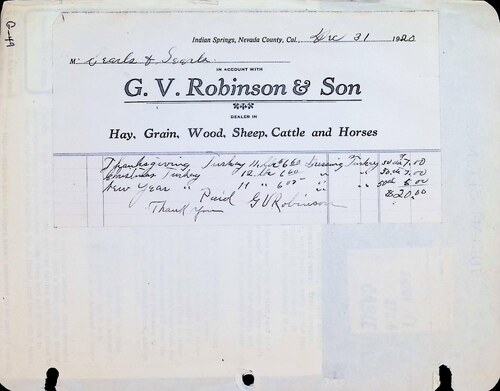 G-49
Indian Springs, Nevada County, Cal., Dec 31 1920
M. Searls & Searls
IN ACCOUNT WITH
G. V. Robinson & Son
DEALER IN
Hay, Grain, Wood, Sheep, Cattle and Horses
Thanksgiving Turkey 11 6.60 Dressing Turkey 7.00
Christmas Turkey 12 " " 7.00
New Year " 11 " 6.00 " " 6.00
Paid $20.00
Thank you G V Robinson